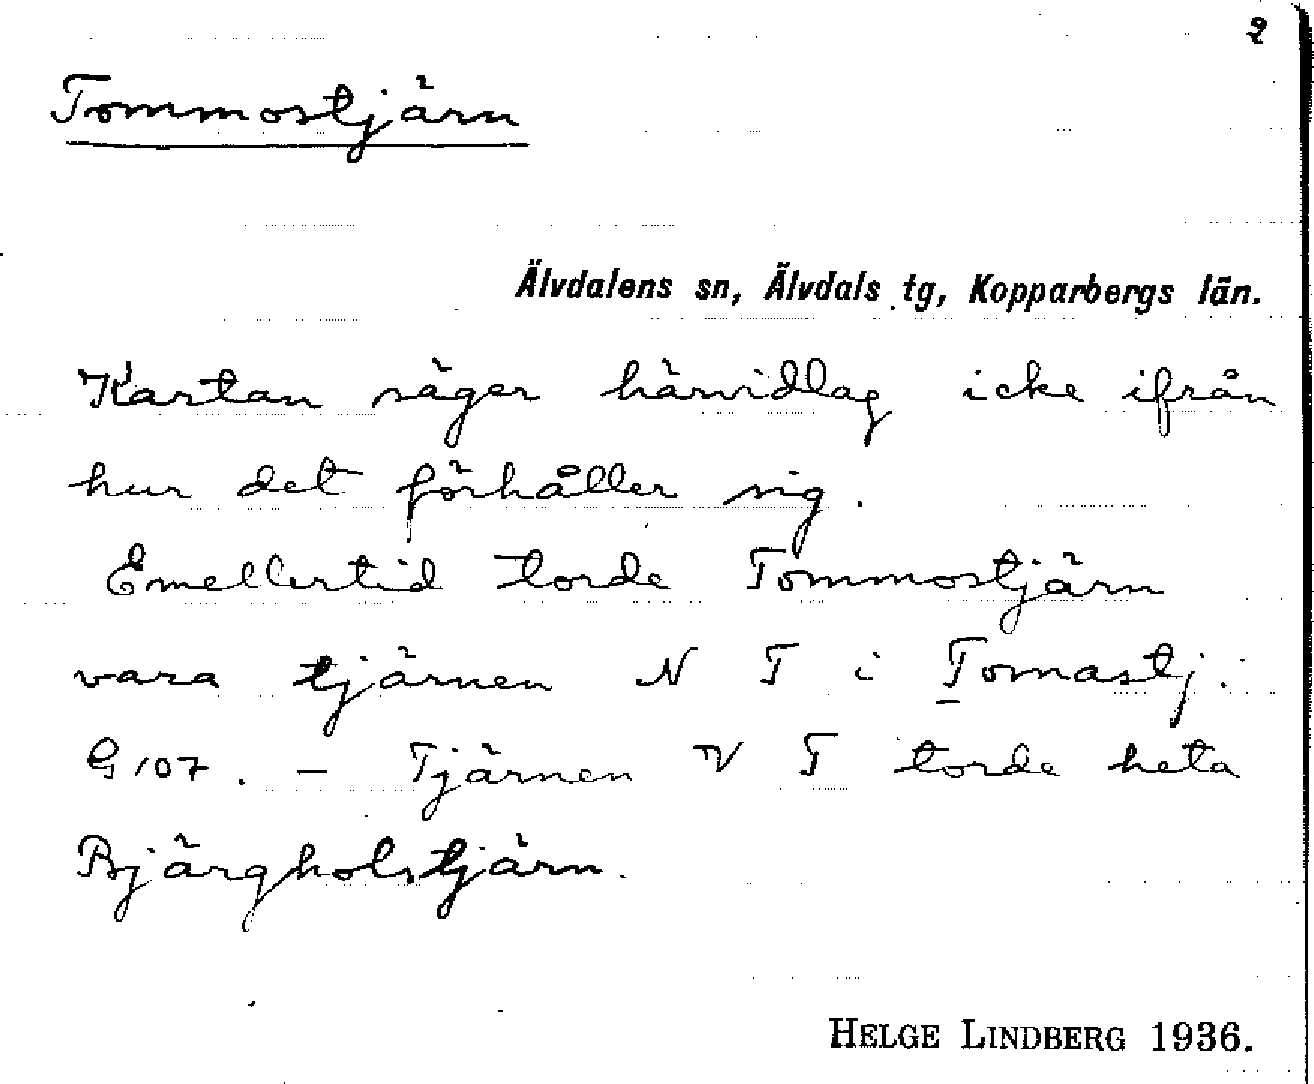 2
Tommostjärn
Älvdalens sn, Älvdals tg, Kopparbergs län.
Kartan säger härvidlag icke ifrån
hur det förhåller sig.
Emellertid torde Tommostjärn
vara tjärnen N T i Tomastj.
G 107. — Tjärnen V T torde heta
Bjärgholstjärn.
HELGE LINDBERG 1936.